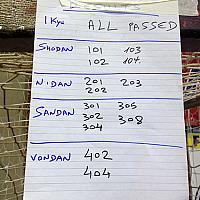 1 Kyu ALL PASSED
SHODAN 101 103
102 104
NIDAN 201 203
202
SANDAN 301 305
302 308
304
YONDAN 402
404